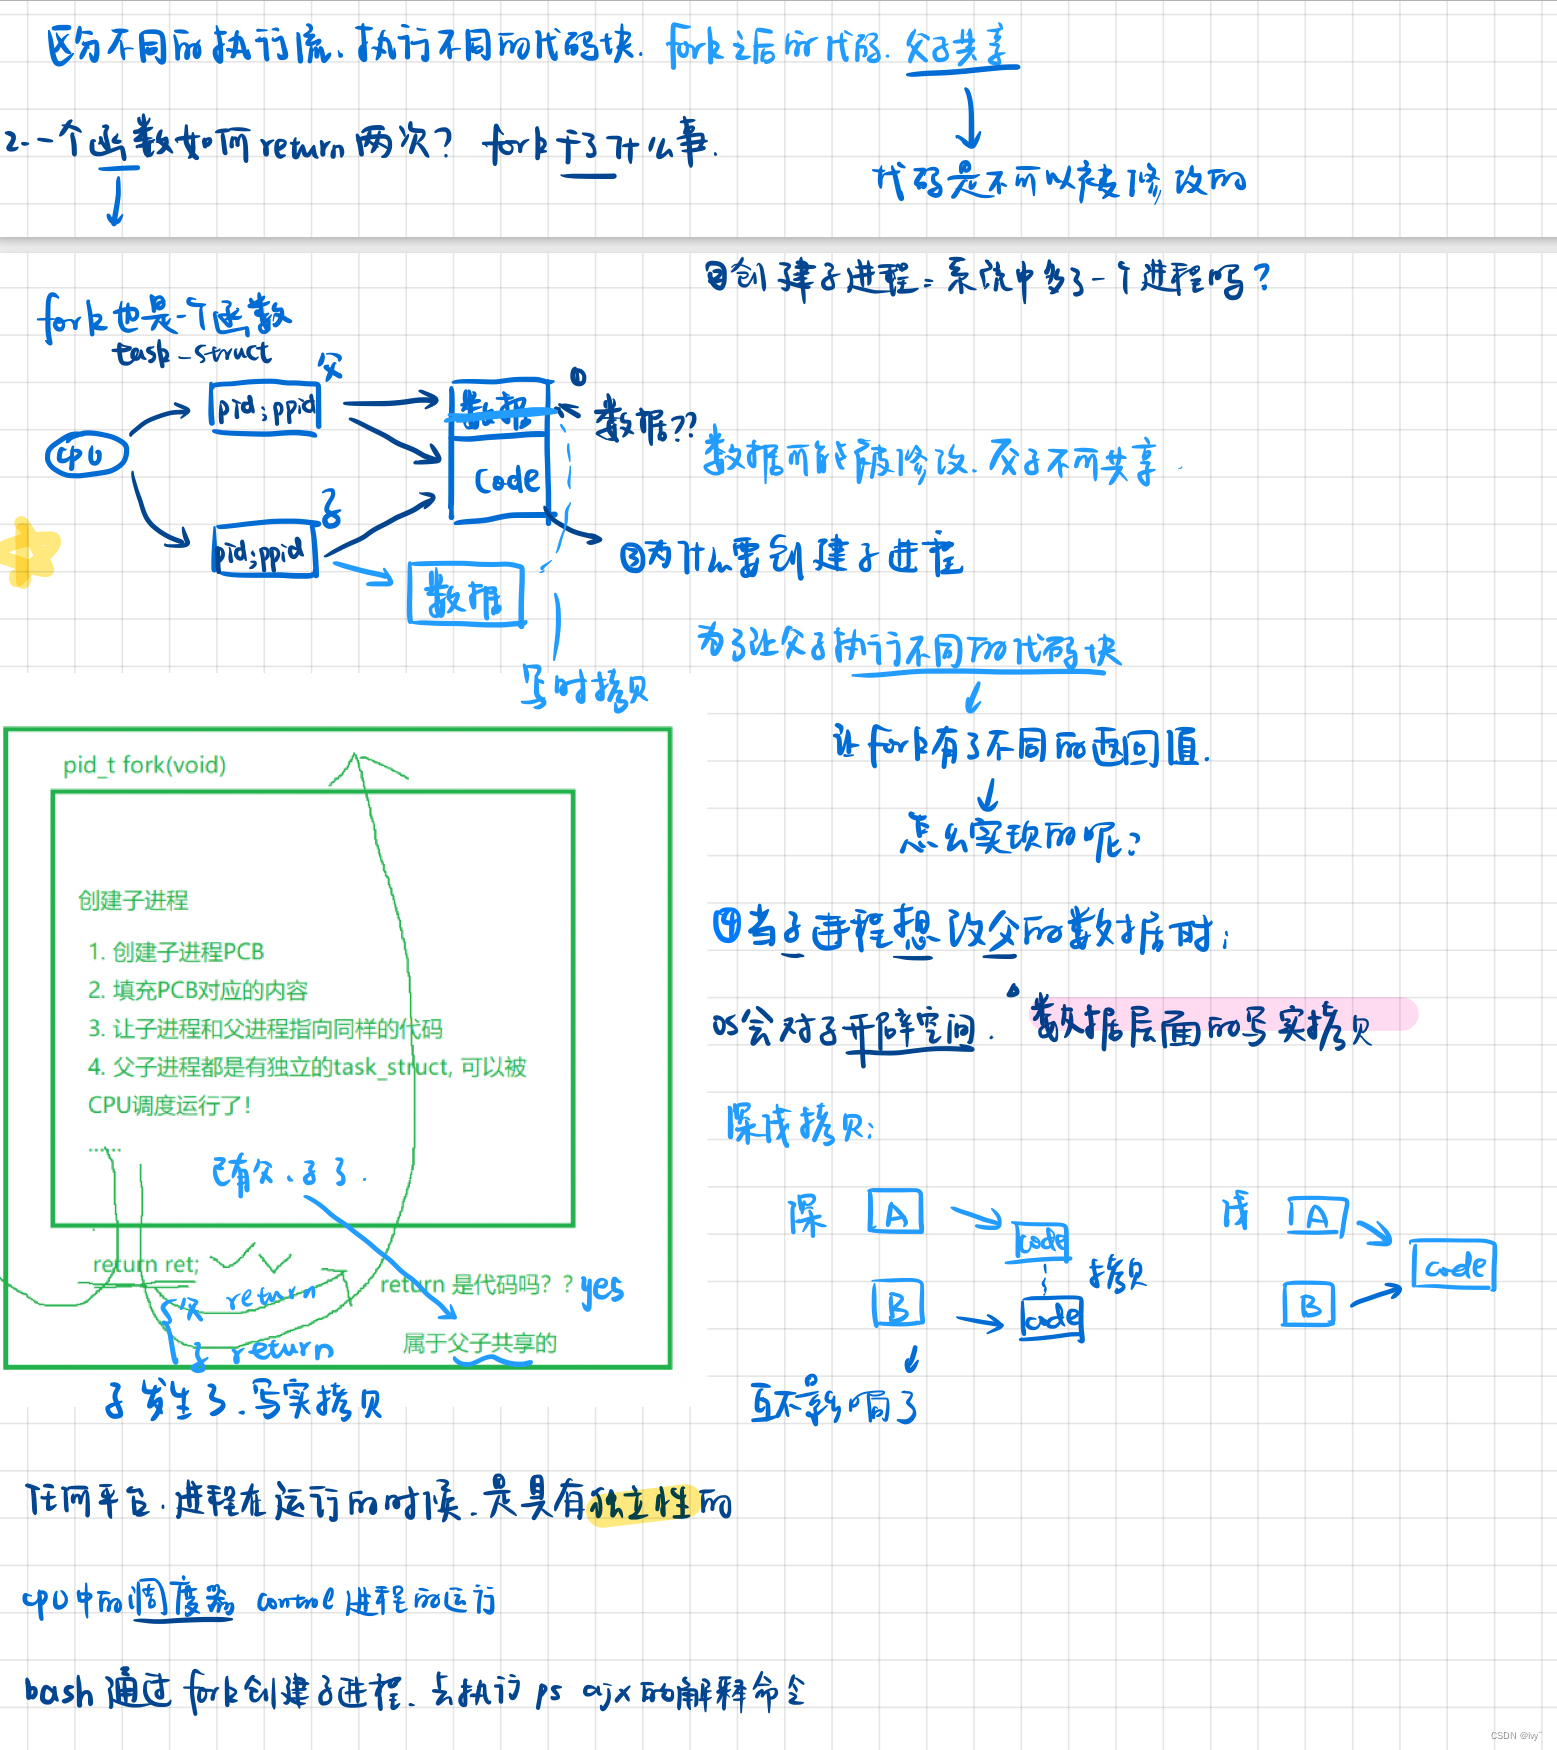 区分不同的执行流、执行不同的代码块. fork之后的代码. 父子共享
代码是不可以被修改的
2.一个函数如何return两次? fork干了什么事.
②创建子进程=系统中多了一个进程吗?
fork也是一个函数
task_struct
父
pid;ppid
cpu
子
pid;ppid
数据
code
数据
①
数据??
写时拷贝
数据可能被修改.父子不可共享.
③为什么要创建子进程
为了让父子执行不同的代码块
让fork有了不同的返回值.
怎么实现的呢?
④当子进程想改父的数据时;
OS会对子开辟空间. 数据层面的写实拷贝
深浅拷贝:
深
A
code
B
code
拷贝
互不影响了
浅
A
B
code
pid_t fork(void)
创建子进程
1. 创建子进程PCB
2. 填充PCB对应的内容
3. 让子进程和父进程指向同样的代码
4. 父子进程都是有独立的task_struct, 可以被
CPU调度运行了!
......
已有父、子了.
return ret;
return 是代码吗? ? yes
父 return
子 return
属于父子共享的
子发生了.写实拷贝
任何平台.进程在运行的时候.是具有独立性的
cpu中的调度器 control进程的运行
bash通过fork创建子进程.去执行ps ajx的解释命令
CSDN @ivy~